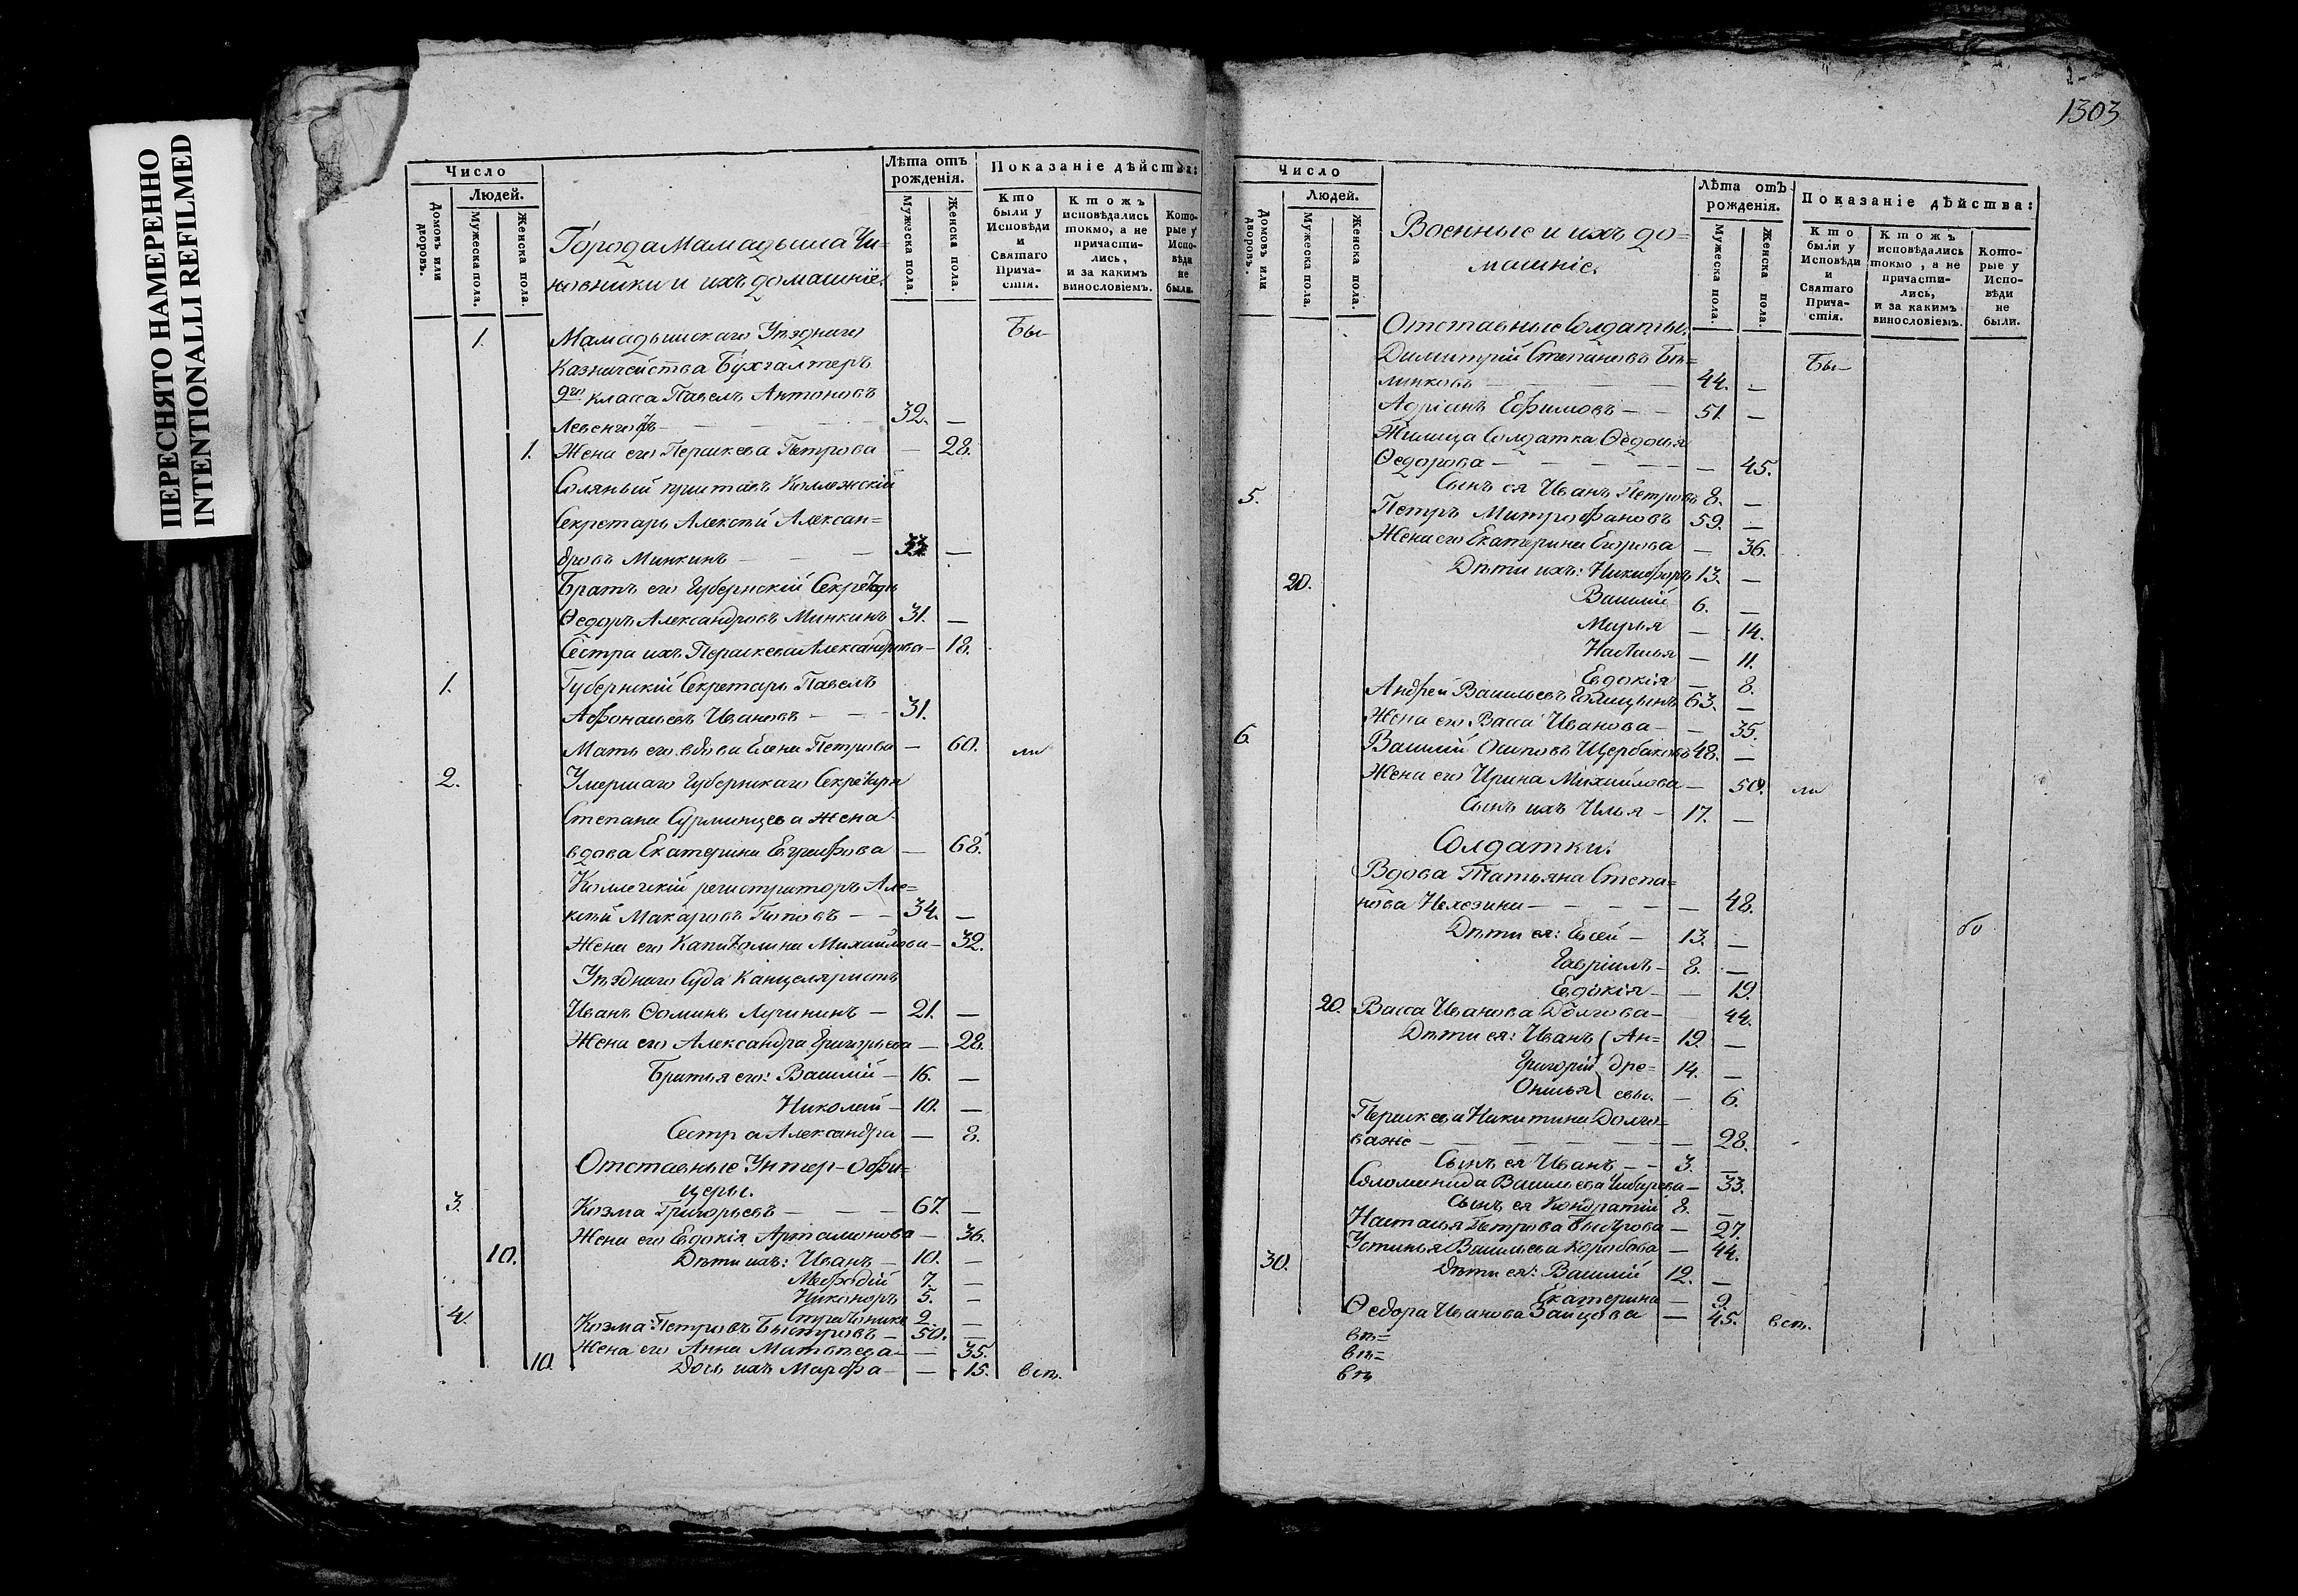 ПЕРЕСНЯТО НАМЕРЕННО
INTENTIONALLI REFILMED
Число
Людей.
Домовъ или дворовъ.
Мужеска пола.
Женска пола.
Города Мамадыша Чи=
новники и ихъ домашніе.
Лѣта отъ рожденія.
Мужеска пола.
Женска пола.
Показаніе дѣйства:
Кто были у Исповѣди и Святаго Причастія.
Ктожъ исповѣдались токмо, а не причастились, и за какимъ винословіемъ.
Которые у Исповѣди не были.
1. Мамадышскаго Уѣзднаго Бы
Казначейства Бухгалтеръ
9го класса Павелъ Антоновъ
Левенгофъ — 32. —
1. Жена его Параскева Петрова — 28.
Соляный приставъ Коллежскій
Секретарь Алексѣй Алексан=
дровъ Минкинъ — 33 —
Братъ его Губернскій Секретарь
Ѳедоръ Александровъ Минкинъ 31. —
Сестра ихъ Параскева Александрова — 18.
1. Губернскій Секретарь Павелъ
Афонасьевъ Ивановъ — 31.
Мать его вдова Елена Петрова — 60. ли
2. Умершаго Губернскаго Секретаря
Степана Сурминцева жена
вдова Екатерина Евграфова — 68.
Коллежскій регистраторъ Але=
ксѣй Макаровъ Поповъ — 34. —
Жена его Капитолина Михайлова — 32.
Уѣзднаго Суда Канцеляристъ
Иванъ Ѳоминъ Лучининъ — 21. —
Жена его Александра Григорьева — 28.
Братья его: Василій — 16. —
Николай — 10. —
Сестра Александра — 8.
Отставные Унтер-Офи=
церы.
3. Козма Григорьевъ — 67. —
Жена его Евдокія Артамонова — 36.
10. Дѣти ихъ: Иванъ — 10. —
Мефодій 7. —
Никаноръ 5. —
Стратоникъ 2. —
4. Козма Петровъ Быстровъ — 50. —
Жена его Анна Матвѣева — 35.
10. Дочь ихъ Марфа — — 15. вст.
1303
Число
Людей.
Домовъ или дворовъ.
Мужеска пола.
Женска пола.
Военные и ихъ до=
машніе.
Лѣта отъ рожденія.
Мужеска пола.
Женска пола.
Показаніе дѣйства:
Кто были у Исповѣди и Святаго Причастія.
Ктожъ исповѣдались токмо, а не причастились, и за какимъ винословіемъ.
Которые у Исповѣди не были.
Отставные Солдаты.
Димитрій Степановъ Бѣ= Бы
линковъ — 44. —
Адріанъ Ефимовъ — 51. —
Жилица Солдатка Ѳедосья
Ѳедорова — — 45.
5. Сынъ ея Иванъ Петровъ 8. —
Петръ Митрофановъ 59. —
Жена его Екатерина Егорова — 36.
20. Дѣти ихъ: Никифоръ 13. —
Василій 6. —
Марья — 14.
Наталья — 11.
Евдокія — 8.
Андрей Васильевъ Голицынъ 63. —
Жена его Васса Иванова — — 35.
6. Василій Осиповъ Щербаковъ 48. —
Жена его Ирина Михайлова — 50. ли
Сынъ ихъ Илья — 17. —
Солдатки.
Вдова Татьяна Степа=
нова — — 48.
Дѣти ея: Евсей — 13. — бо
Гавріилъ — 8. —
Евдокія — — 19.
20. Васса Иванова Долгова — 44.
Дѣти ея: Иванъ Ан= 19. —
Григорій дре= 14. —
евы. — 6.
Параскева Никитина Долго=
важе — — 28.
Сынъ ея Иванъ — 3. —
Соломонида Васильева — 33.
Сынъ ея Кондратій 8. —
Настасья Петрова — 27.
Устинья Васильева Коробова — 44.
30. Дѣти ея: Василій 12. —
Екатерина — 9.
Ѳедора Иванова Зайцова — 45. вст.
вт=
вт=
вт